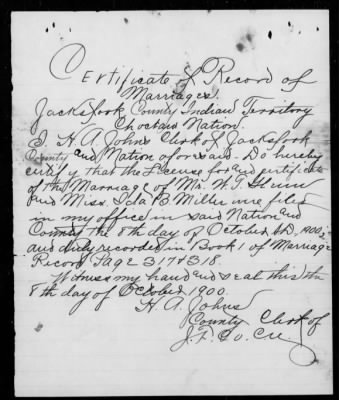 Certificate of Record of
Marriages.
Jacksfork County Indian Territory
Choctaw Nation.
I H. A. Johns Clerk of Jacksfork
County and Nation aforesaid. Do hereby
certify that the License for and certificate
of the Marriage of Mr. W. T.
and Miss. Ida B. were filed
in my office in said Nation and
County the 8th day of October A.D. 1900,
and duly recorded in Book 1 of Marriage
Record Page 317 & 318.
Witness my hand and seal this the
8th day of October 1900.
H. A. Johns
County Clerk of
J. F. Co.